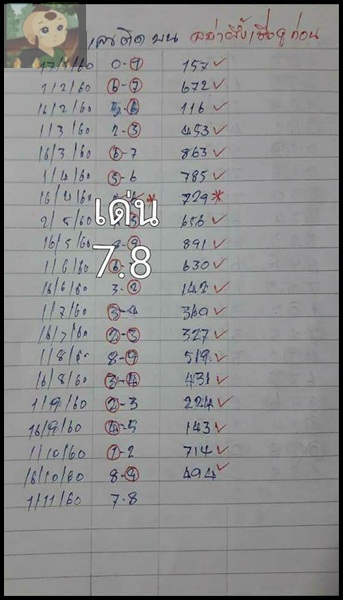 เลขติด บน อย่าพึ่งเชื่อดูก่อน
17/1/60 0-7 157 ✓
1/2/60 6-7 672 ✓
16/2/60 5-6 116 ✓
1/3/60 2-3 453 ✓
16/3/60 6-7 863 ✓
1/4/60 5-6 785 ✓
16/4/60 * 729 *
2/5/60 656 ✓
เด่น
16/5/60 -9 891 ✓
7.8
1/6/60 6- 630 ✓
16/6/60 3-2 142 ✓
1/7/60 3-4 360 ✓
16/7/60 2-3 327 ✓
1/8/60 8-9 519 ✓
16/8/60 3-4 431 ✓
1/9/60 2-3 224 ✓
16/9/60 4-5 143 ✓
1/10/60 1-2 714 ✓
16/10/60 8-9 494 ✓
1/11/60 7-8